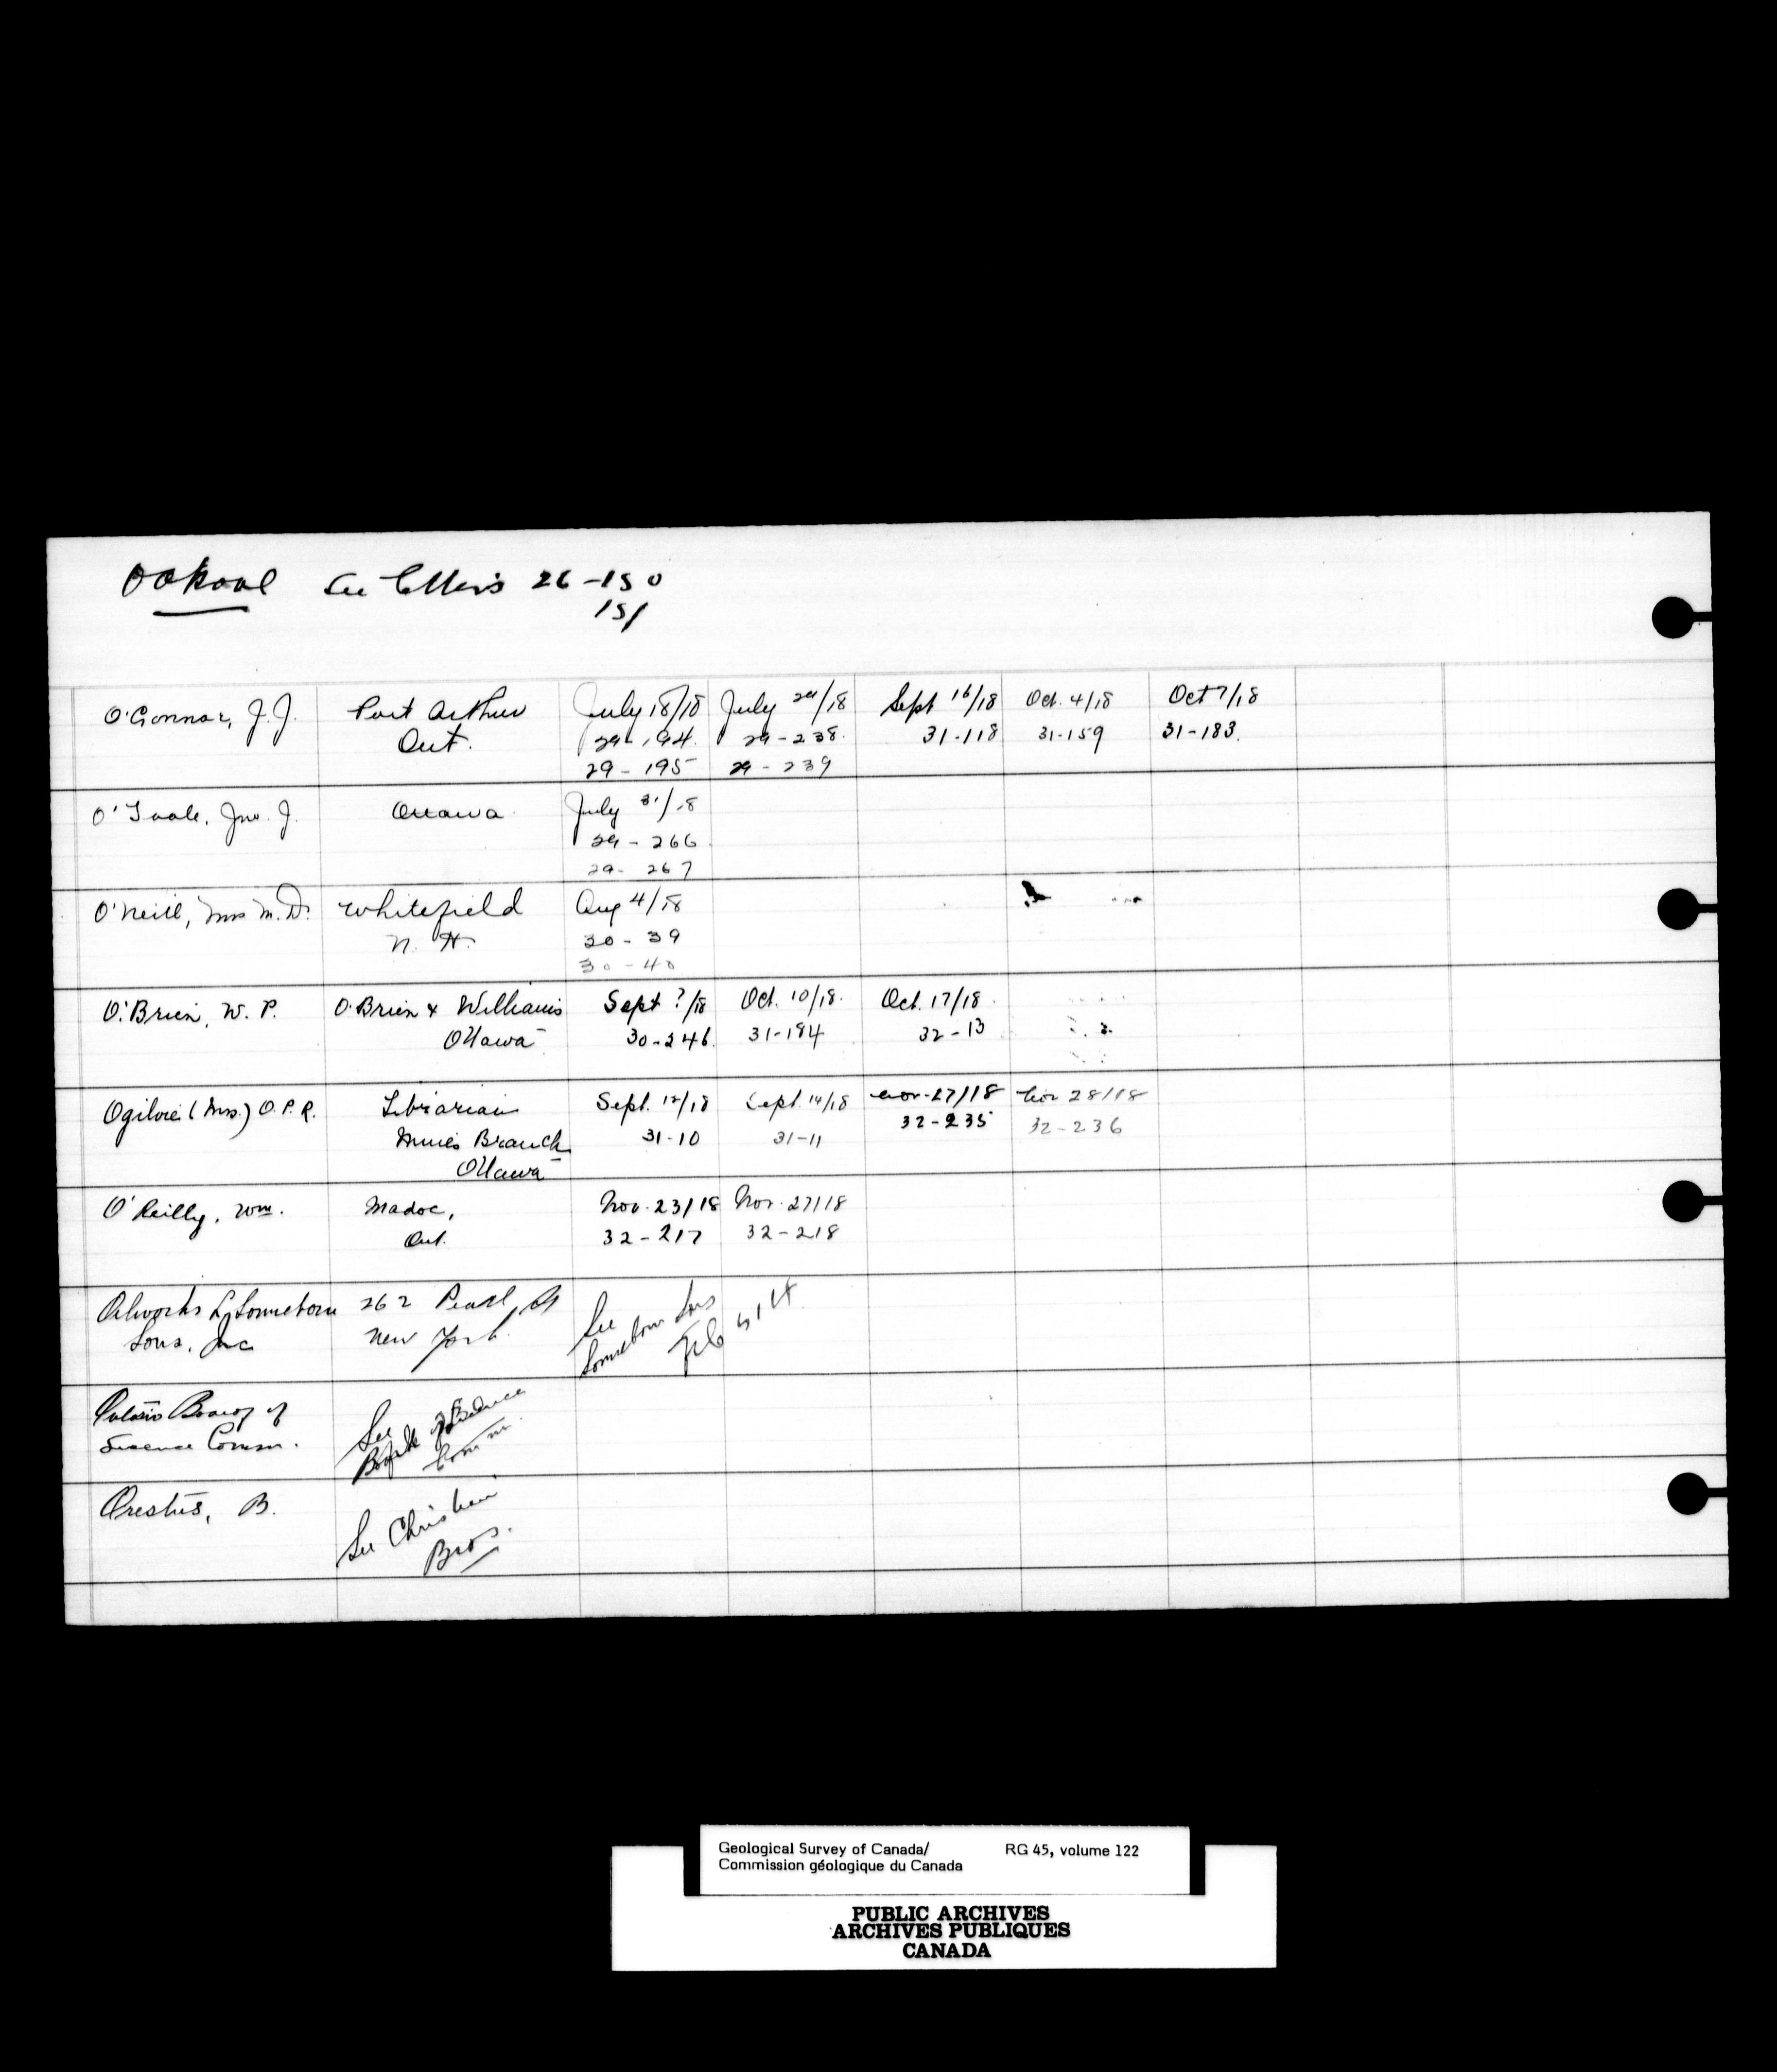 See Ellis 26-150
151
O'Connor, J. J.
Port Arthur
Ont.
July 18/18
29-194.
29-195
July 24/18
29-238.
29-239
Sept 16/18
31-118
Oct. 4/18
31-159
Oct 7/18
31-183.
O'Toole, Jno. J.
Ottawa
July 31/18
29-266
29-267
O'Neill, Mrs M. D.
Whitefield
N. H.
Aug 4/18
30-39
30-40
O'Brien, W. P.
O'Brien & Williams
Ottawa
Sept ?/18
30-246.
Oct. 10/18.
31-184
Oct. 17/18.
32-13
Ogilvie (Mrs.) O. P. R.
Librarian
Mines Branch
Ottawa
Sept. 12/18
31-10
Sept. 14/18
31-11
Nov-27/18
32-235
Nov 28/18
32-236
O'Reilly, Wm.
Madoc,
Ont.
Nov. 23/18
32-217
Nov. 27/18
32-218
Oilworks L. Sonneborn
Sons, Inc
262 Pearl St
New York.
See
Sonneborn Sons
Feb
Ontario Board of
Science Comm.
See
of Science
Comm.
Orestus, B.
See Christian
Bros.
Geological Survey of Canada/
Commission géologique du Canada
RG 45, volume 122
PUBLIC ARCHIVES
ARCHIVES PUBLIQUES
CANADA